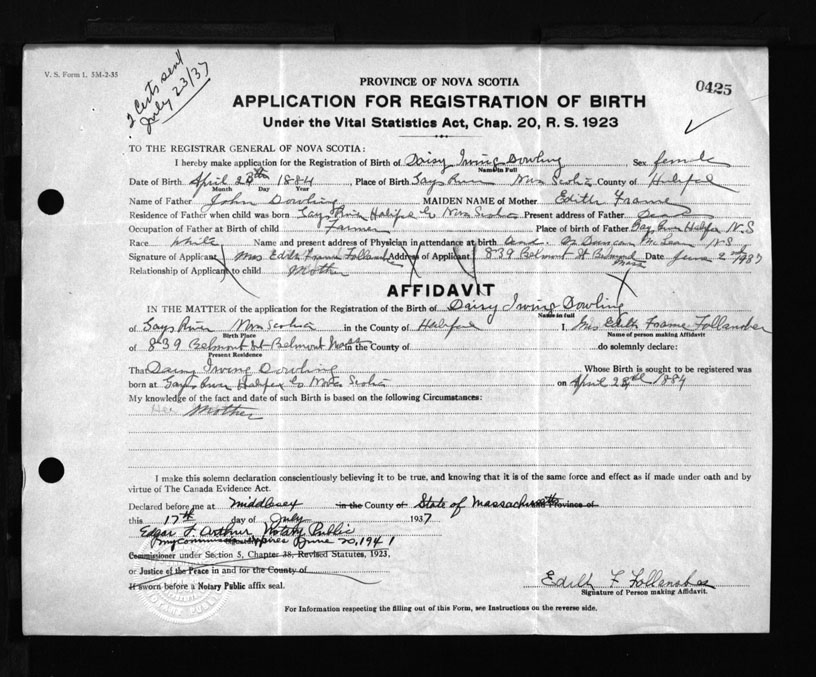 V. S. Form 1. 5M-2-35
2 Certs sent
July 23/37
PROVINCE OF NOVA SCOTIA
0425
APPLICATION FOR REGISTRATION OF BIRTH
Under the Vital Statistics Act, Chap. 20, R. S. 1923
TO THE REGISTRAR GENERAL OF NOVA SCOTIA:
I hereby make application for the Registration of Birth of Daisy Irving Dowling, Sex female
Name in Full
Date of Birth April 28th 1884, Place of Birth Gays River Nova Scotia County of Halifax
Month Day Year
Name of Father John Dowling MAIDEN NAME of Mother Edith Frame
Residence of Father when child was born Gays River Halifax Co Nova Scotia Present address of Father Dead
Occupation of Father at Birth of child Farmer Place of birth of Father Gays River Halifax N.S
Race White Name and present address of Physician in attendance at birth Dr Duncan McLean N S
Signature of Applicant Mrs Edith Frame Follansbee Address of Applicant 839 Belmont St Belmont Mass Date June 2nd 1937
Relationship of Applicant to child Mother
AFFIDAVIT
IN THE MATTER of the application for the Registration of the Birth of Daisy Irving Dowling
Name in full
of Gays River Nova Scotia in the County of Halifax I, Mrs Edith Frame Follansbee
Birth Place Name of person making Affidavit
of 839 Belmont St Belmont Mass in the County of do solemnly declare:
Present Residence
That Daisy Irving Dowling Whose Birth is sought to be registered was
born at Gays River Halifax Co Nova Scotia on April 28th 1884
My knowledge of the fact and date of such Birth is based on the following Circumstances:
Her Mother
I make this solemn declaration conscientiously believing it to be true, and knowing that it is of the same force and effect as if made under oath and by
virtue of The Canada Evidence Act.
Declared before me at Middlesex in the County of State of Massachusetts Province of
this 17th day of July 1937
Edgar F. Arthur Notary Public
My commission expires June 20, 1941
Commissioner under Section 5, Chapter 38, Revised Statutes, 1923,
or Justice of the Peace in and for the County of
If sworn before a Notary Public affix seal.
Edith F Follansbee
Signature of Person making Affidavit.
For Information respecting the filling out of this Form, see Instructions on the reverse side.